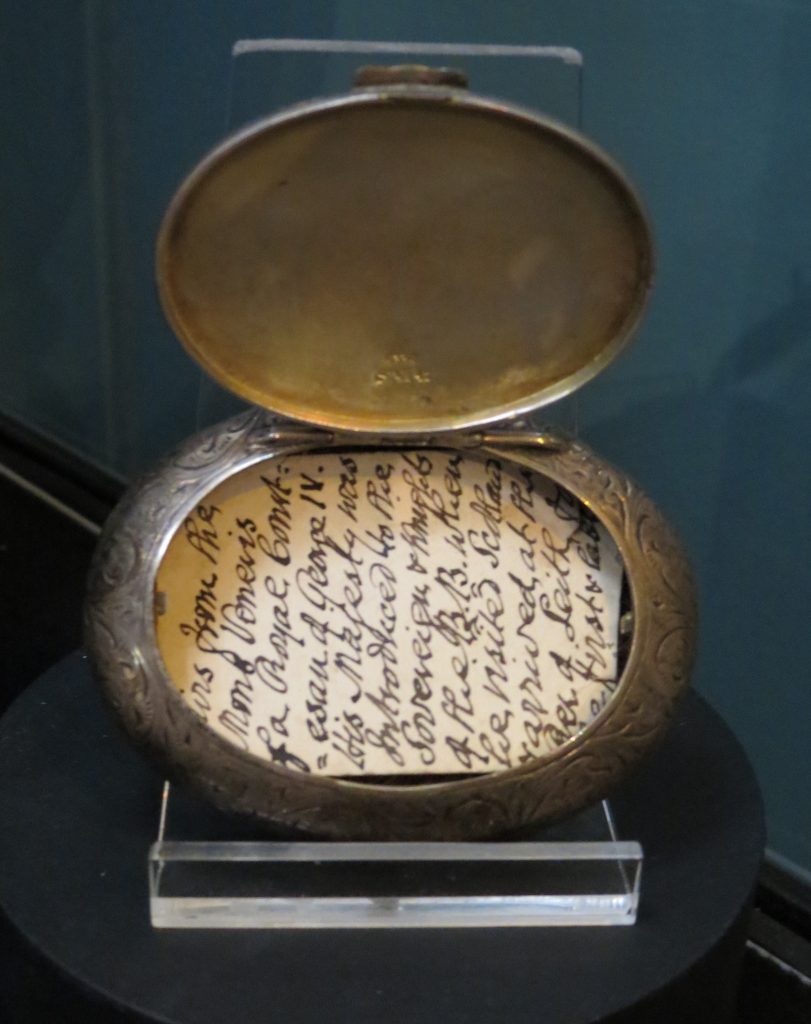 irs from the
Mons Veneris
of a Royal Court=
=esan of George IV.
His Majesty was
Introduced to the
Sovereign & Knights
of the B.B. when
he visited Scotlan
& arrived at the
Pier of Leith
First &